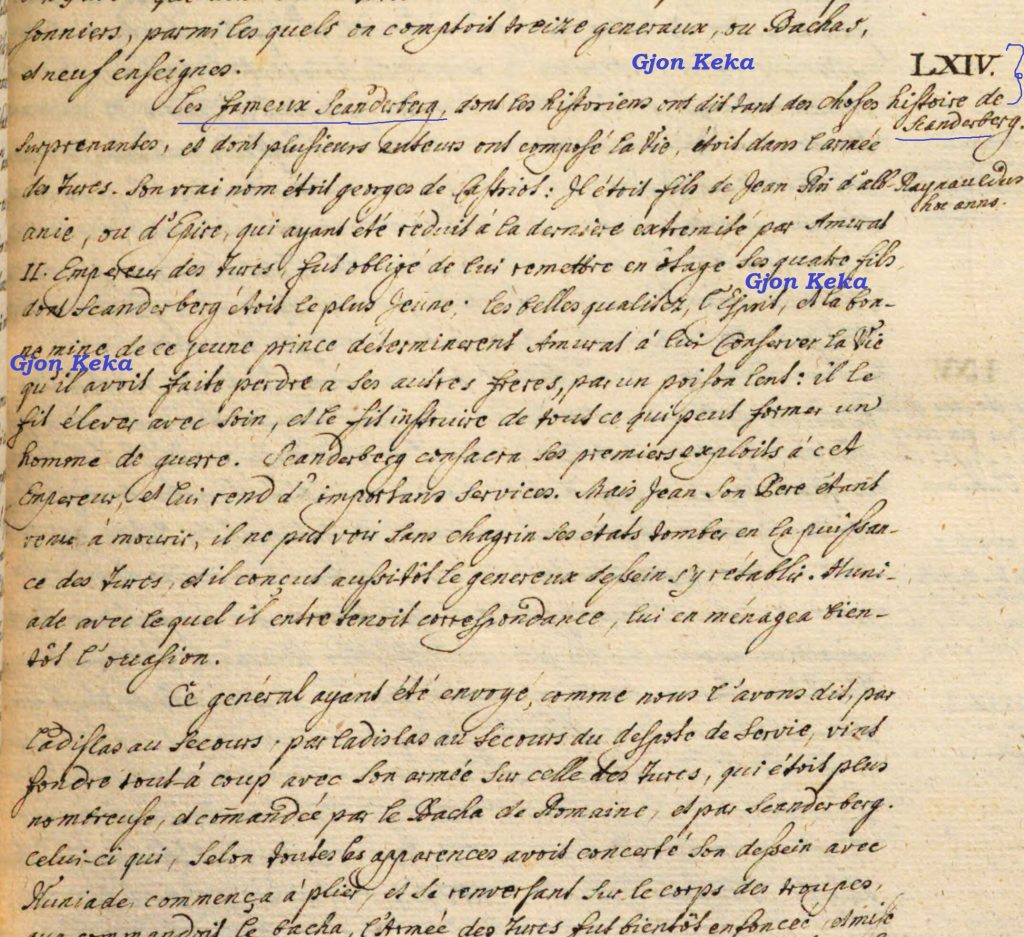 sonniers, parmi les quels on comptoit treize generaux, ou Bachas,
et neuf enseignes.
Gjon Keka
LXIV.
les fameux Scanderberg, dont les historiens ont dit tant des choses
histoire de
Scanderberg.
surprenantes, et dont plusieurs auteurs ont composé la Vie, étoit dans l'armée
des Turcs. Son vrai nom étoit georges de Castriot: Il étoit fils de Jean Roi d'alb-
Raynauldus
hoc anno.
anie, ou d'Epire, qui ayant été réduit à la derniére extremité par Amurat
II. Empereur des Turcs, fut obligé de lui remettre en ôtage ses quatre fils,
Gjon Keka
dont Scanderberg étoit le plus jeune; les belles qualitez, l'Esprit, et la bon-
ne mine de ce jeune prince déterminerent Amurat à lui Conserver la Vie
Gjon Keka
qu'il avoit faite perdre à ses autres freres, par un poison lent: il le
fit élever avec soin, et le fit instruire de tout ce qui peut former un
homme de guerre. Scanderberg consacra ses premiers exploits à cet
Empereur, et lui rend d'importans services. Mais Jean Son Pere étant
venu à mourir, il ne put voir sans chagrin ses états tomber en la puissan-
ce des Turcs, et il conçut aussitôt le genereux dessein s'y rétablir. Huni-
ade avec lequel il entretenoit correspondance, lui en ménagea bien-
tôt l'occasion.
Ce genéral ayant été envoyé, comme nous l'avons dit, par
ladislas au secours, par ladislas au secours du despote de Servie, vint
fondre tout-à coup avec son armée sur celle des Turcs, qui étoit plus
nombreuse, et com̃andée par le Bacha de Romaine, et par Scanderberg.
celui-ci qui, selon toutes les apparences avoit concerté son dessein avec
Huniade, commença à plier, et se renversant sur le corps des troupes,
que commandoit le bacha, l'Armée des Turcs fut bientôt enfoncée, et mise